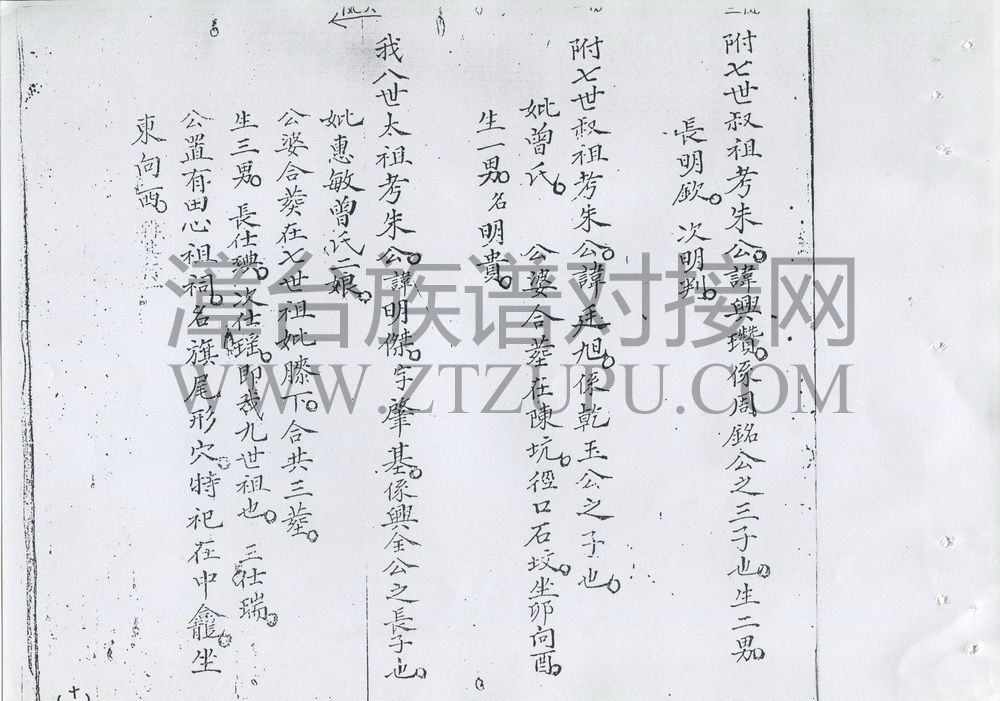 附七世叔祖考朱公諱興瓚。係周銘公之三子也。生二男。
長明欽。次明判。
附七世叔祖考朱公諱廷旭。係乾玉公之子也。
妣曾氏。 公婆合葬在陳坑。徑口石坟。坐卯向酉。
生一男。名明貴。
我八世太祖考朱公諱明傑。字肇基。係興全公之長子也。
妣惠敏曾氏二娘。
公婆合葬在七世祖妣膝下。合共三葬。
生三男。長仕璵。次仕瑤。即我九世祖也。三仕瑞。
公置有田心祖祠。名旗尾形穴。時祀在中龕。坐
東向西。
(十)
漳台族谱对接网
WWW.ZTZUPU.COM